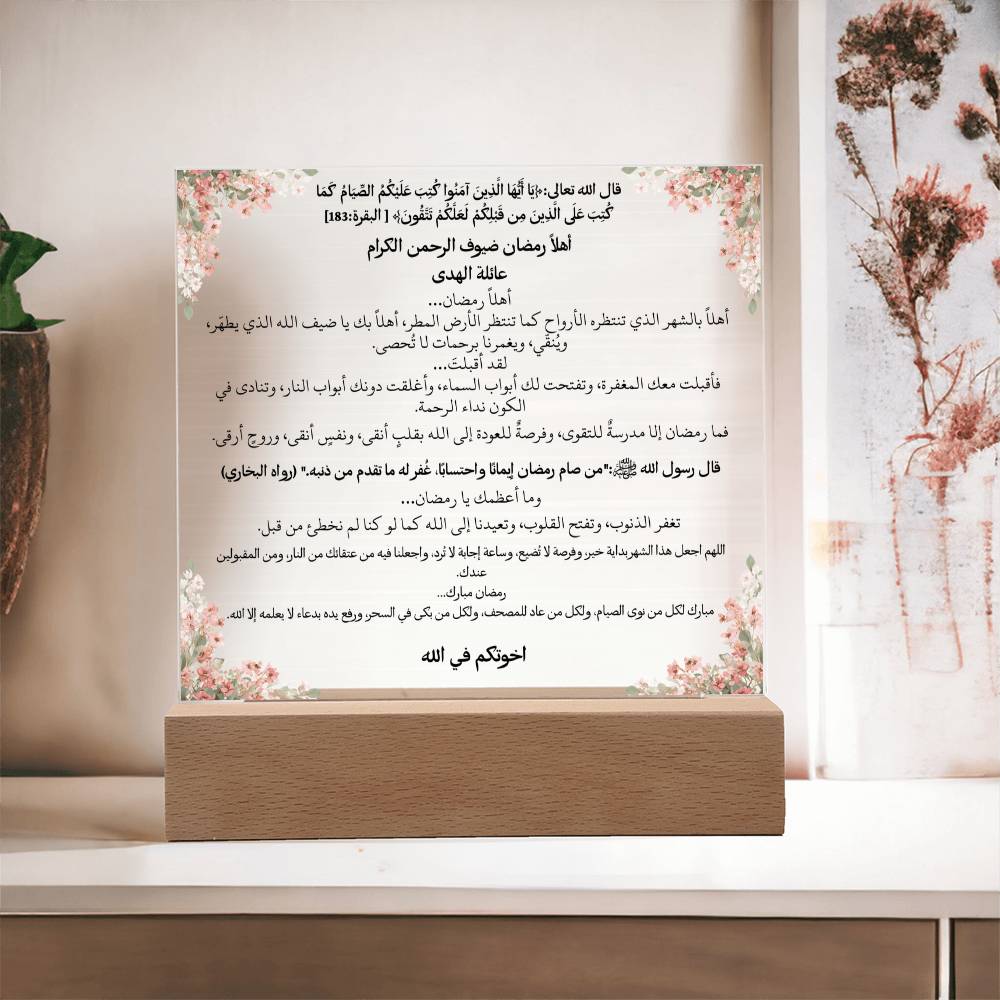 قال الله تعالى:﴿يَا أَيُّهَا الَّذِينَ آمَنُوا كُتِبَ عَلَيْكُمُ الصِّيَامُ كَمَا
كُتِبَ عَلَى الَّذِينَ مِن قَبْلِكُمْ لَعَلَّكُمْ تَتَّقُونَ﴾ [ البقرة:183]
أهلاً رمضان ضيوف الرحمن الكرام
عائلة الهدى
أهلاً رمضان...
أهلاً بالشهر الذي تنتظره الأرواح كما تنتظر الأرض المطر، أهلاً بك يا ضيف الله الذي يطهّر،
ويُنقّي، ويغمرنا برحمات لا تُحصى.
لقد أقبلتَ...
فأقبلت معك المغفرة، وتفتحت لك أبواب السماء، وأغلقت دونك أبواب النار، وتنادى في
الكون نداء الرحمة.
فما رمضان إلا مدرسةٌ للتقوى، وفرصةٌ للعودة إلى الله بقلبٍ أنقى، ونفسٍ أنقى، وروحٍ أرقى.
قال رسول الله ﷺ:"من صام رمضان إيمانًا واحتسابًا، غُفر له ما تقدم من ذنبه." (رواه البخاري)
وما أعظمك يا رمضان...
تغفر الذنوب، وتفتح القلوب، وتعيدنا إلى الله كما لو كنا لم نخطئ من قبل.
اللهم اجعل هذا الشهربداية خير، وفرصة لا تُضيع، وساعة إجابة لا تُرد، واجعلنا فيه من عتقائك من النار، ومن المقبولين
عندك.
رمضان مبارك...
مبارك لكل من نوى الصيام، ولكل من عاد للمصحف، ولكل من بكى في السحر، ورفع يده بدعاء لا يعلمه إلا الله.
اخوتكم في الله